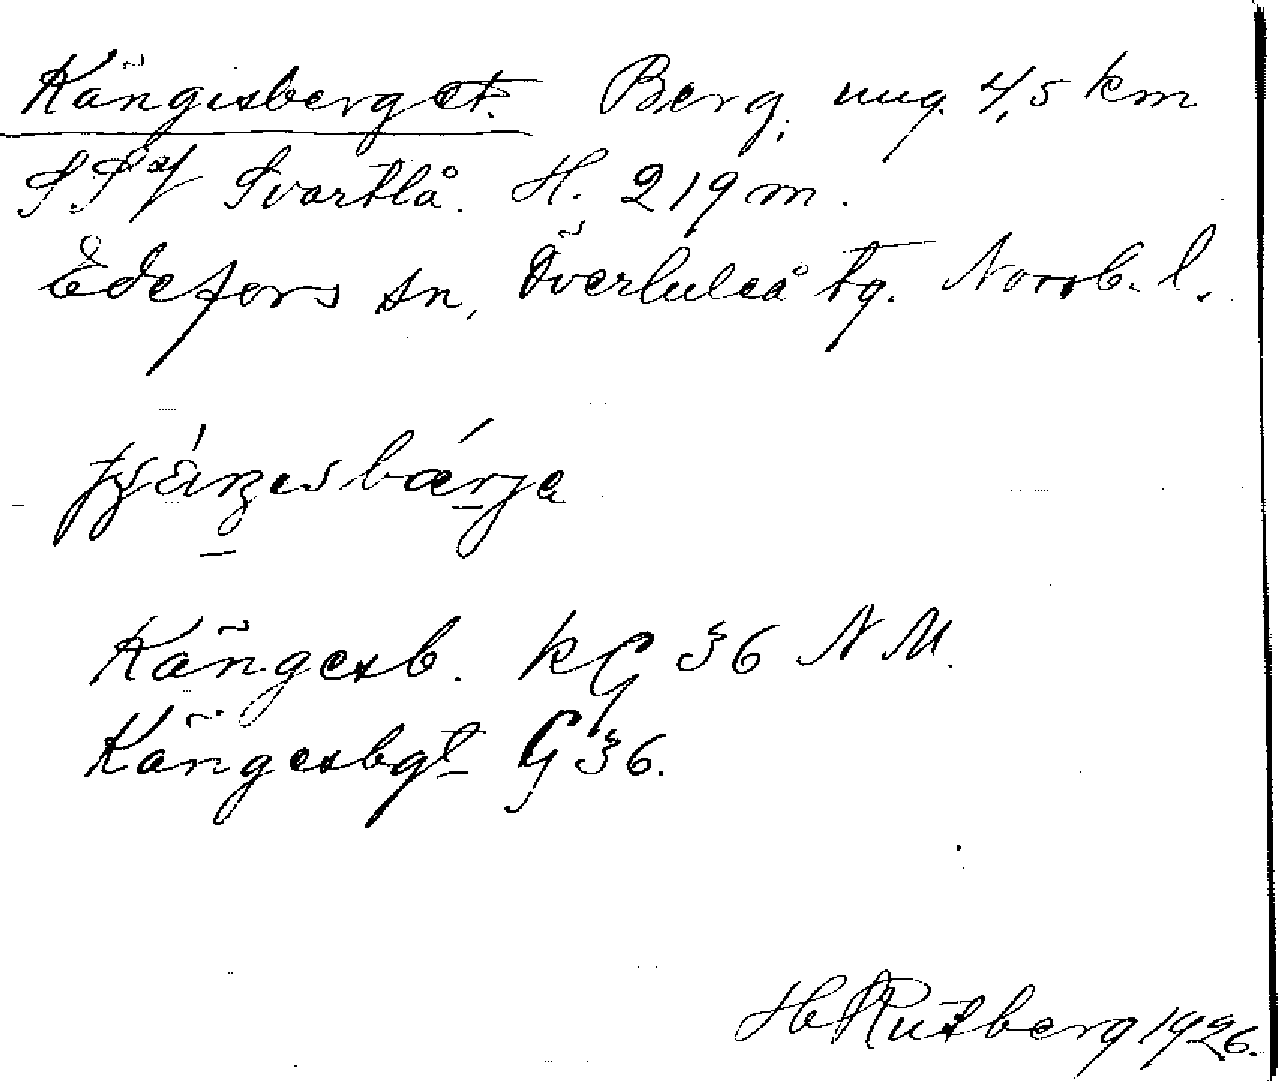 Kängisberget. Berg, ung. 4,5 km
SSV Svartlå. H. 219 m.
Edefors sn, Överluleå tg. Norrb. l.
Kängesb. kG 36 NM.
Kängesbgt G 36.
H Rutberg 1926.